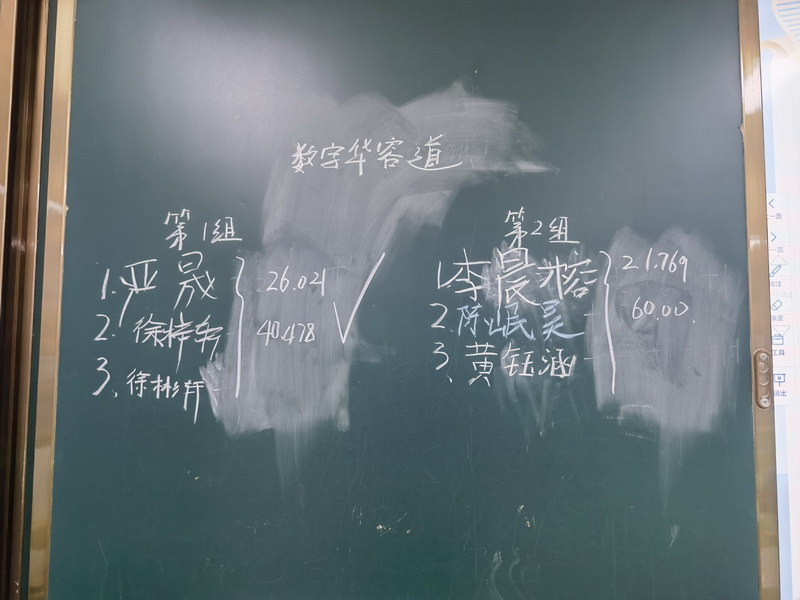 数字华容道
第1组
1.严晟 26.021
2.徐梓轩 40.478
3、徐彬轩
第2组
1.李晨榕 21.769
2.陈岷昊 60.00.
3、黄钰涵